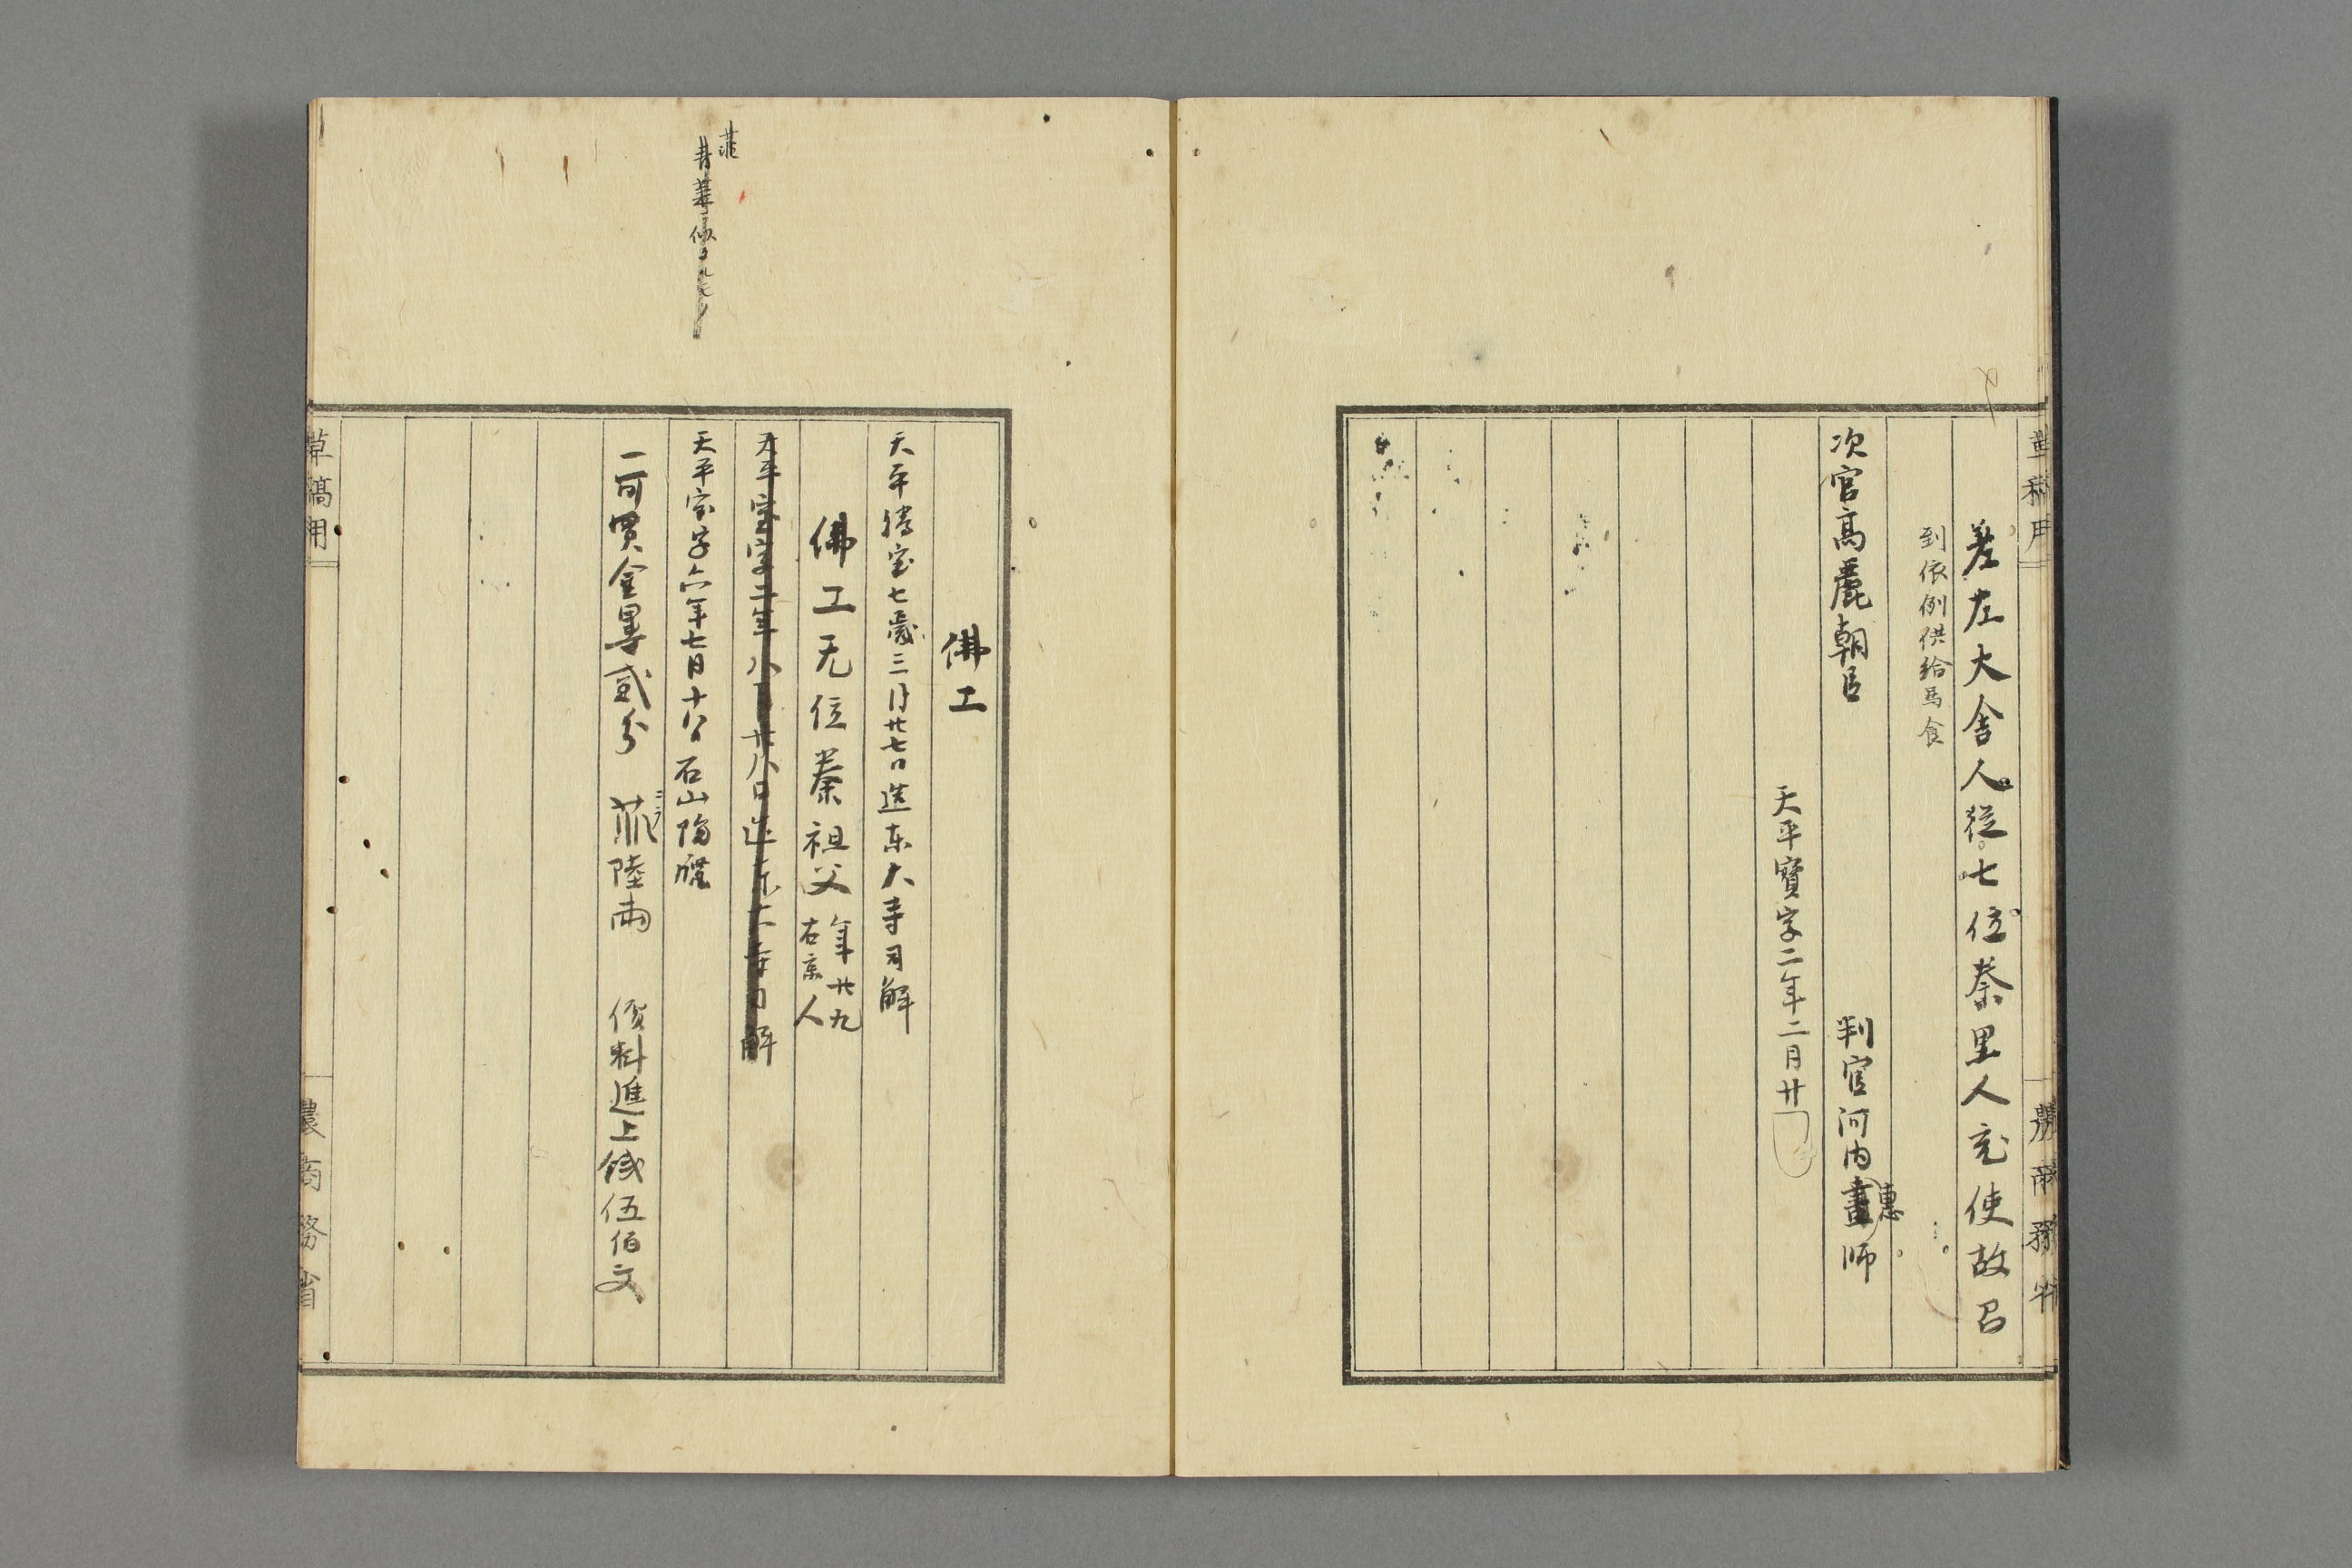 差左大舎人從七位秦里人充使故召
到依例供給馬食
次官高麗朝臣
判官河内畫師
惠
天平寶字二年二月廿
佛工
天平勝宝七歳三月廿七日造東大寺司解
佛工无位秦祖父
年廿九
右京人
天平宝字二年八月廿八日造東大寺司解
天平宝字六年七月十八日石山院牒
一可買金墨貳分
陸兩
儥料進上錢伍佰文
草稿用
農商務省